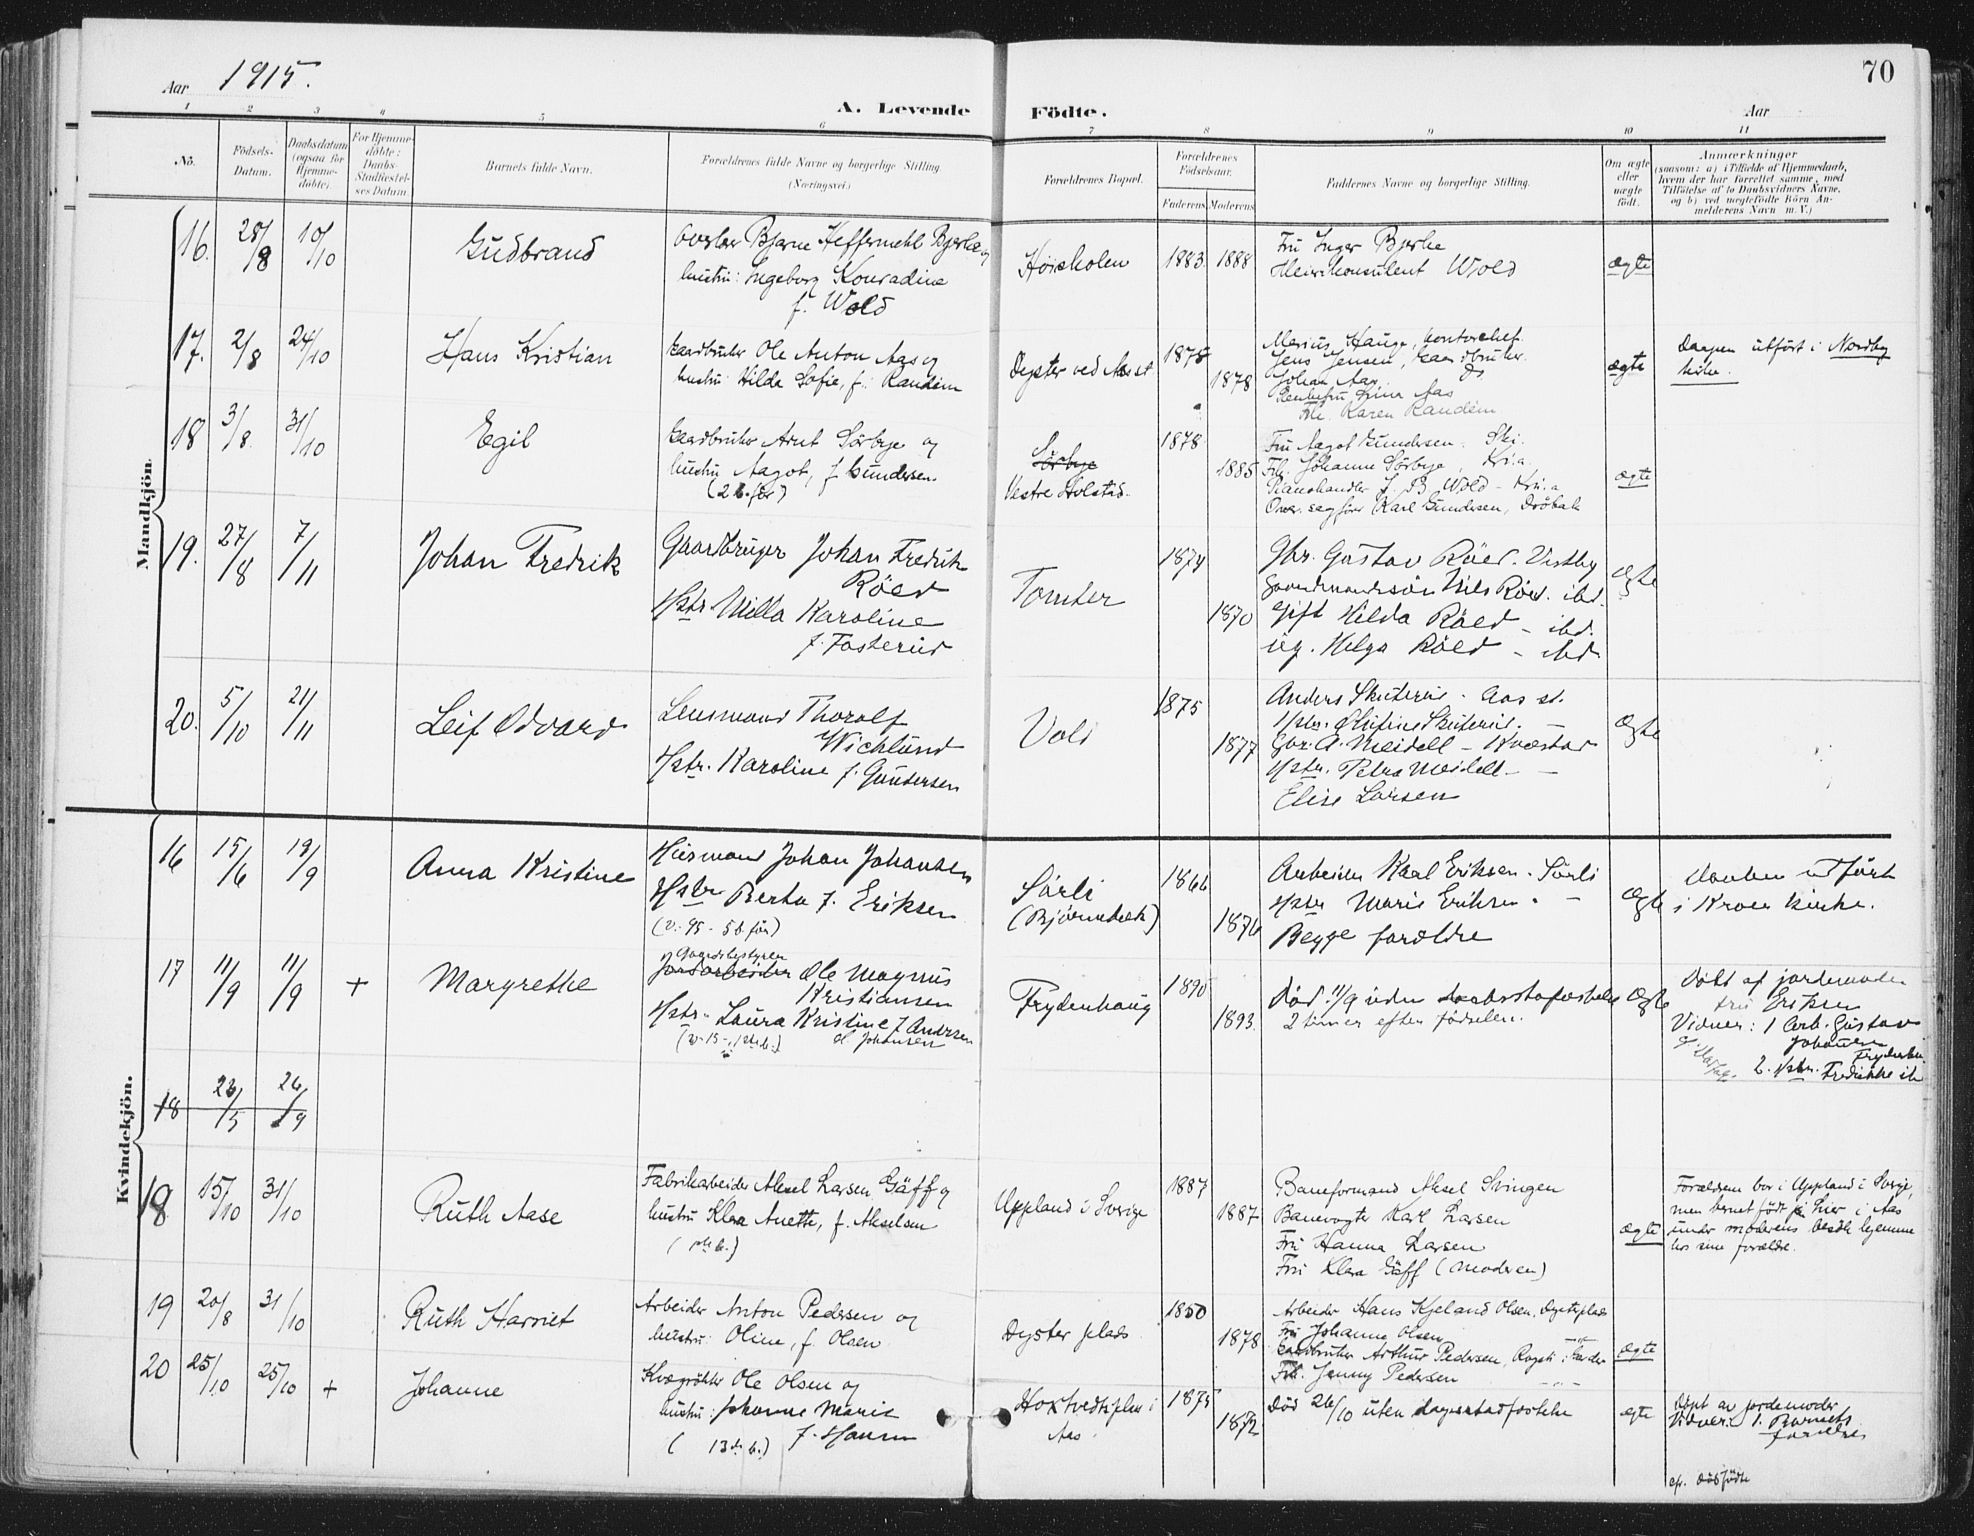 Aar 1915.
70
A. Levende Födte.
Aar
1 2 3 4 5 6 7 8 9 10 11
No.
Födsels-Datum.
Daabsdatum (ogsaa for Hjemmedöbte).
For Hjemmedöbte: Daabs-Stadfæstelses Datum.
Barnets fulde Navn.
Forældrenes fulde Navne og borgerlige Stilling. (Næringsvei.)
Forældrenes Bopæl.
Forældrenes Födselsaar.
Faderens Moderens
Faddernes Navne og borgerlige Stilling.
Om ægte eller uægte födt.
Anmærkninger
(saasom: a) i Tilfælde af Hjemmedaab,
hvem der har forrettet samme, med
Tilföielse af to Daabsvidners Navne,
og b) ved uegtefödte Börn An-
melderens Navn m. V.)
Mandkjön.
16. 28/8 10/10 Gudbrand
Overlær Bjarne Heffermehl Bjerke og
hustru: Ingeborg Konradine
f. Wold
Höiskolen 1883. 1888
Fru Inger Bjerke
konsulent Wold
ægte
17. 2/8 24/10 Hans Kristian
Gaardbruker Ole Anton Aas og
hustru Hilda Sofie, f. Randem
Dyster ved Aas st 1875 1878
Marius Hauge, kontorchef.
Jens Jensen, Gaardbruker.
Johan Aas. Do
Lina Aas
Frk. Karen Randem
ægte
Daapen utfört i Nordby
kirke.
18 3/8 31/10 Egil
Gaardbruker Arnt Sörbye og
hustru Aagot, f. Gundersen.
(2 b. før)
Sörbye
Vestre Holstad. 1878 1885
Fru Aagot Gundersen. Ski.
Frk. Johanne Sörbye, Kr.a.
Pianohandler J. B. Wold - Kr.a
Over. sagförer Karl Gundersen, Dröbak
ægte
19. 27/8 7/11 Johan Fredrik
Gaardbruger Johan Fredrik
Röed
Hstr. Milla Karoline
f. Fosterud
Tomter 1874 1870
Gbr. Gustav Röed. Vestby
Gaardmandssön Nils Röed. ibd.
Gift Hilda Röed - ibd.
ug. Helga Röed - ibd.
Ægte
20. 5/10 21/11 Leif Odvard
Lensmand Thoralf
Wichlund
Hstr. Karoline f. Gundersen
Vold 1875 1877
Anders Skuterud. Aas st.
Hstr. Olufine Skuterud. -
Gbr. A. Meidell - Kvæstad
Hstr. Petra Meidell - -
Elise Larsen
Ægte
Kvindekjön.
16 15/6 19/9 Anna Kristine
Husmand Johan Johansen
Hstr Berta f. Eriksen
(v. 95 - 5 b. før)
Sörli
(Björnebæk) 1866 1876
Arbeider Karl Eriksen. Sörli
Hstr Marie Eriksen. -
Begge forældre
Ægte
Daaben udfört
i Kroer kirke.
17 11/9 11/9 + Margrethe
Gaardsbestyrer
Jordarbeider Ole Magnus
Kristiansen
Hstr. Laura Kristine f. Andrsen
(v. 15 - 1ste b.) el Johansen
Frydenhaug 1890 1893.
Död 11/9 uden daabsstadfæstelse
2 timer efter födselen.
Ægte
Döbt af jordemoder
fru Eriksen
Vidner: 1 Arb. Gustav
Johansen
2. Hstr. Fredrikke ib
18 23/5 26/9
18 15/10 31/10 Ruth Aase
Fabrikarbeider Aksel Larsen Gäff og
hustru Klara Anette, f. Akselsen
(1ste b.)
Uppland i Sverige 1887 1887
Baneformand Aksel Svingen
Banevogter Karl Larsen
Fru Hanna Larsen
Fru Klara Gäff (Moderen)
ægte
Forældrene bor i Uppland i Sverige,
men barnet födt her i Aas
under moderens besök hjemme
hos sine forældre.
19 20/8 31/10 Ruth Harriet
Arbeider Anton Pedersen og
hustru: Oline, f. Olsen
Dyster plads 1850 1878
Arbeider Hans Kjeland Olsen, Dysterplads
Fru Johanne Olsen -"-
Gaardbruker Arthur Pedersen,
Frk. Jenny Pedersen -"-
ægte
20 25/10 25/10 + Johanne
Kvægrökter Ole Olsen og
hustru: Johanne Marie
( 13de b.) f. Hansen
Hoxtvedtplas i
Aas 1875 1872
Död 26/10 uten daapsstadfæstelse
ægte
Döpt av jordemoder
Vidner: 1. Barnets
forældre
cfr. Dödfödte